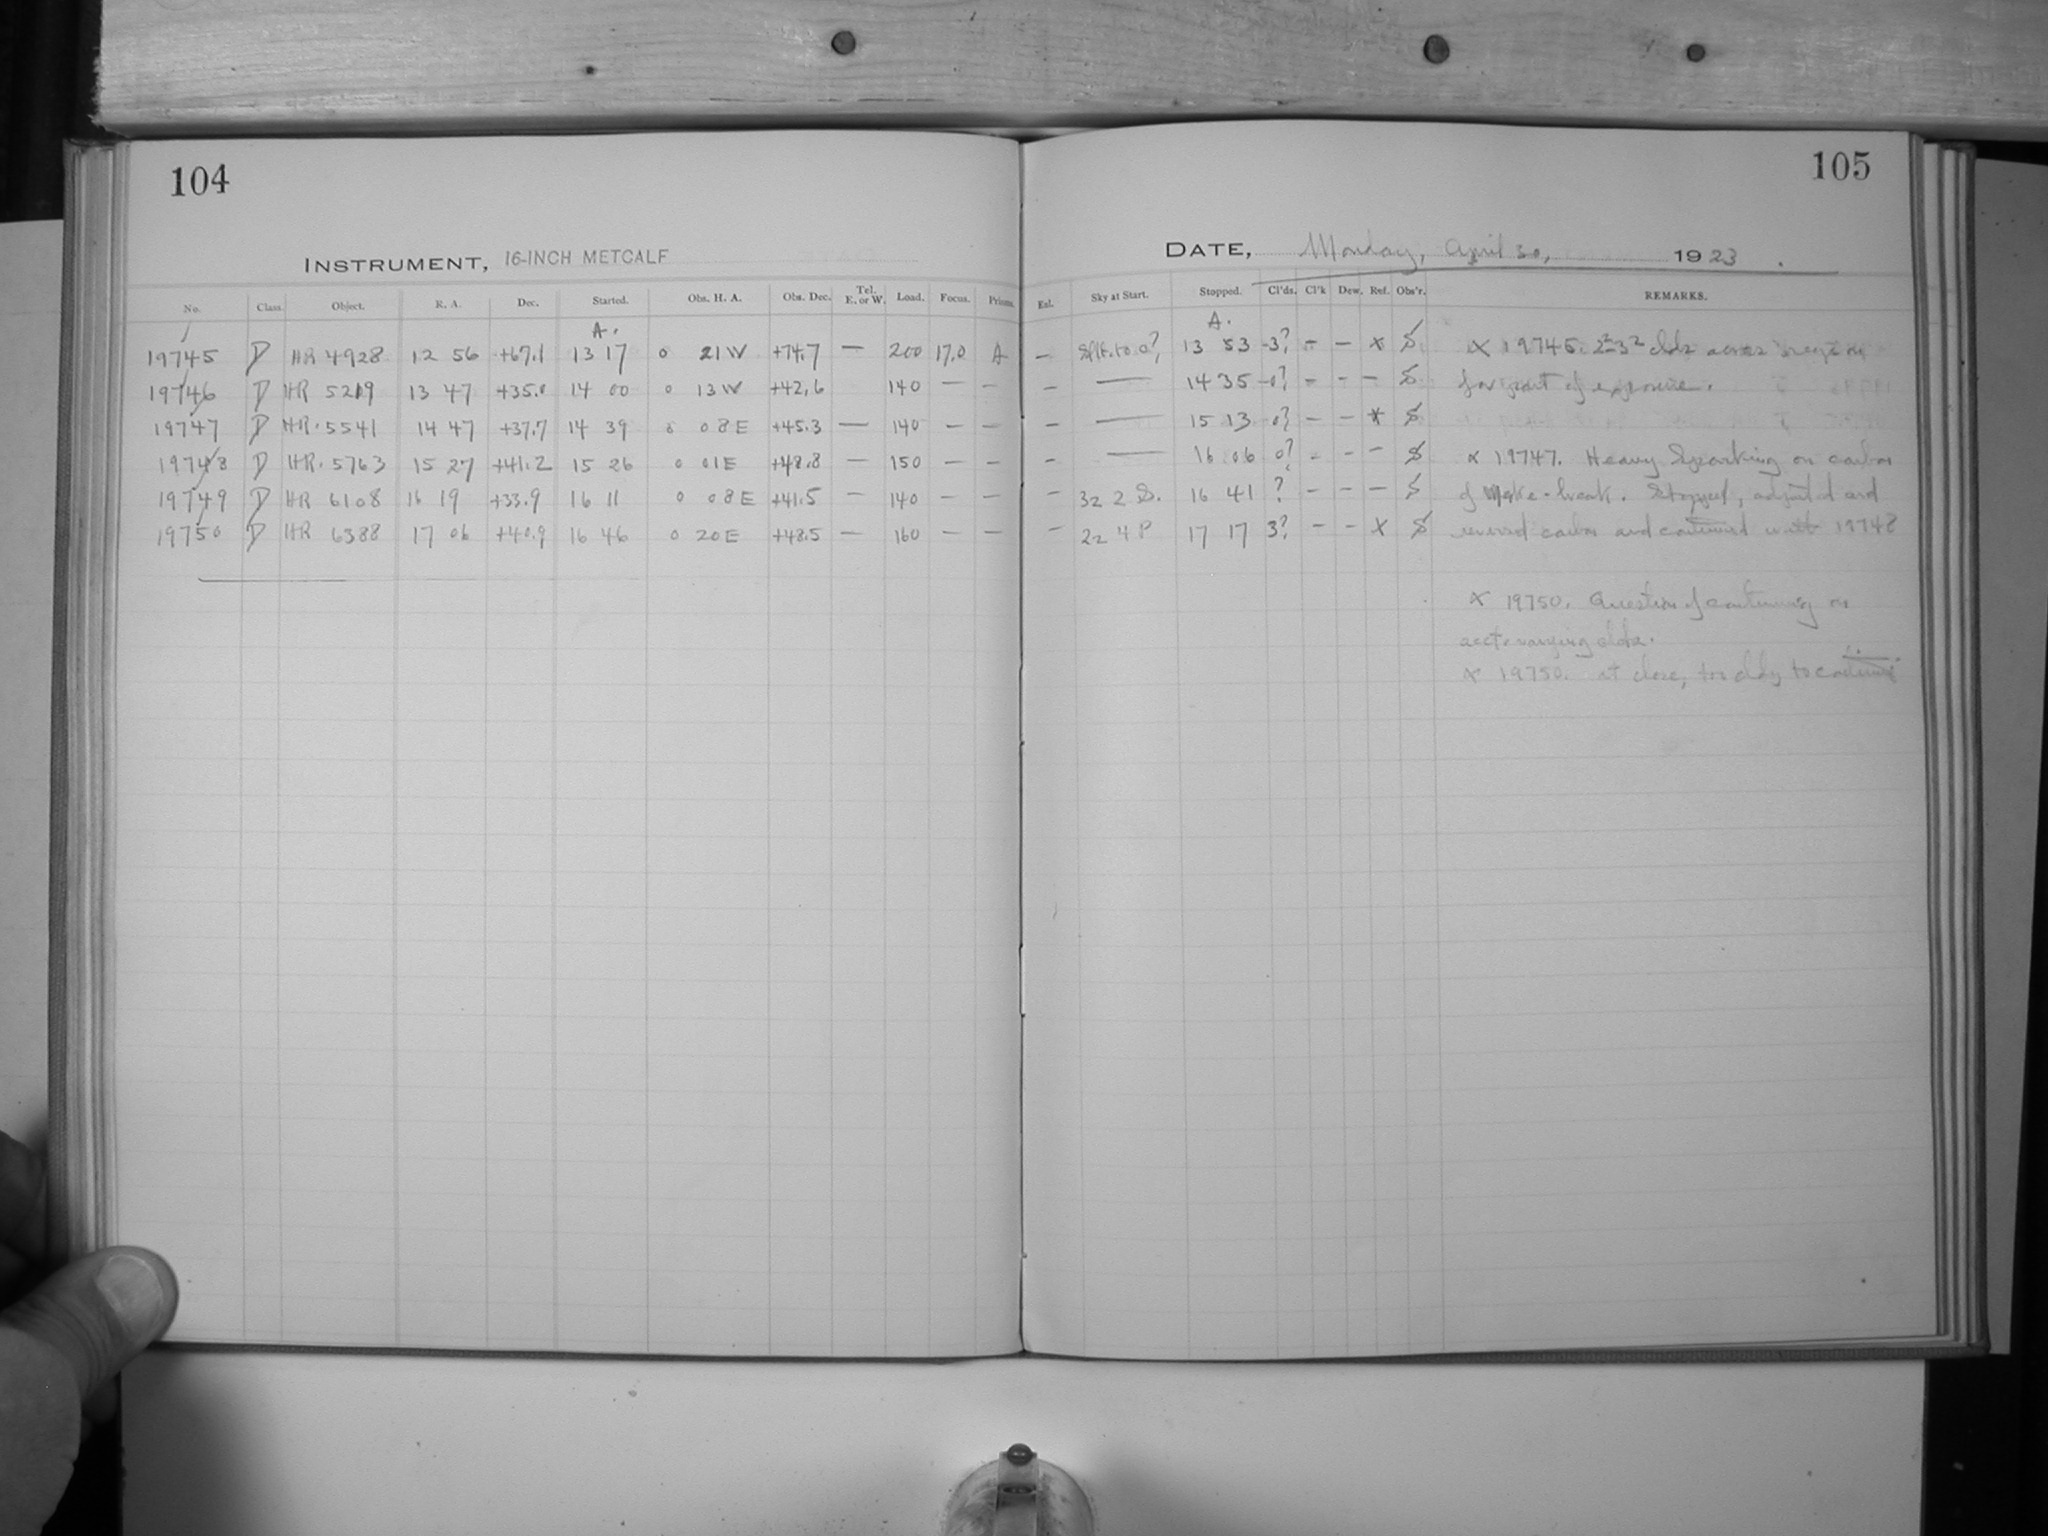 104
INSTRUMENT, 16-INCH METCALF
No. Class. Object. R. A. Dec. Started. Obs. H. A. Obs. Dec. Tel. E. or W. Load. Focus. Prism.
A.
19745 D HR 4928 12 56 +67.1 13 17 0 21 W +74.7 — 200 17.0 A
19746 D HR 5219 13 47 +35.0 14 00 0 13 W +42.6 140 — —
19747 D HR. 5541 14 47 +37.7 14 39 0 08 E +45.3 — 140 — —
19748 D HR. 5763 15 27 +41.2 15 26 0 01 E +48.8 — 150 — —
19749 D HR 6108 16 19 +33.9 16 11 0 08 E +41.5 — 140 — —
19750 D HR 6388 17 06 +40.9 16 46 0 20 E +48.5 — 160 — —
105
DATE, Monday, April 30, 1923.
Exl. Sky at Start. Stopped. Cl'ds. Cl'k Dew. Ref. Obs'r. REMARKS.
A.
— 13 53 3? — — x S
— — 14 35 0? — — — S
— — 15 13 0? — — x S
— — 16 06 0? — — — S
— 3z 2 S. 16 41 ? — — — S
— 2z 4 P 17 17 3? — — x S
x 19745. 2²3² clds across region
for part of exposure.
x 19747. Heavy sparking on carbon
of make-break. Stopped, adjusted and
reversed carbon and continued with 19748
x 19750. Question of continuing on
acct. varying clds.
x 19750. at close, too cldy to continue